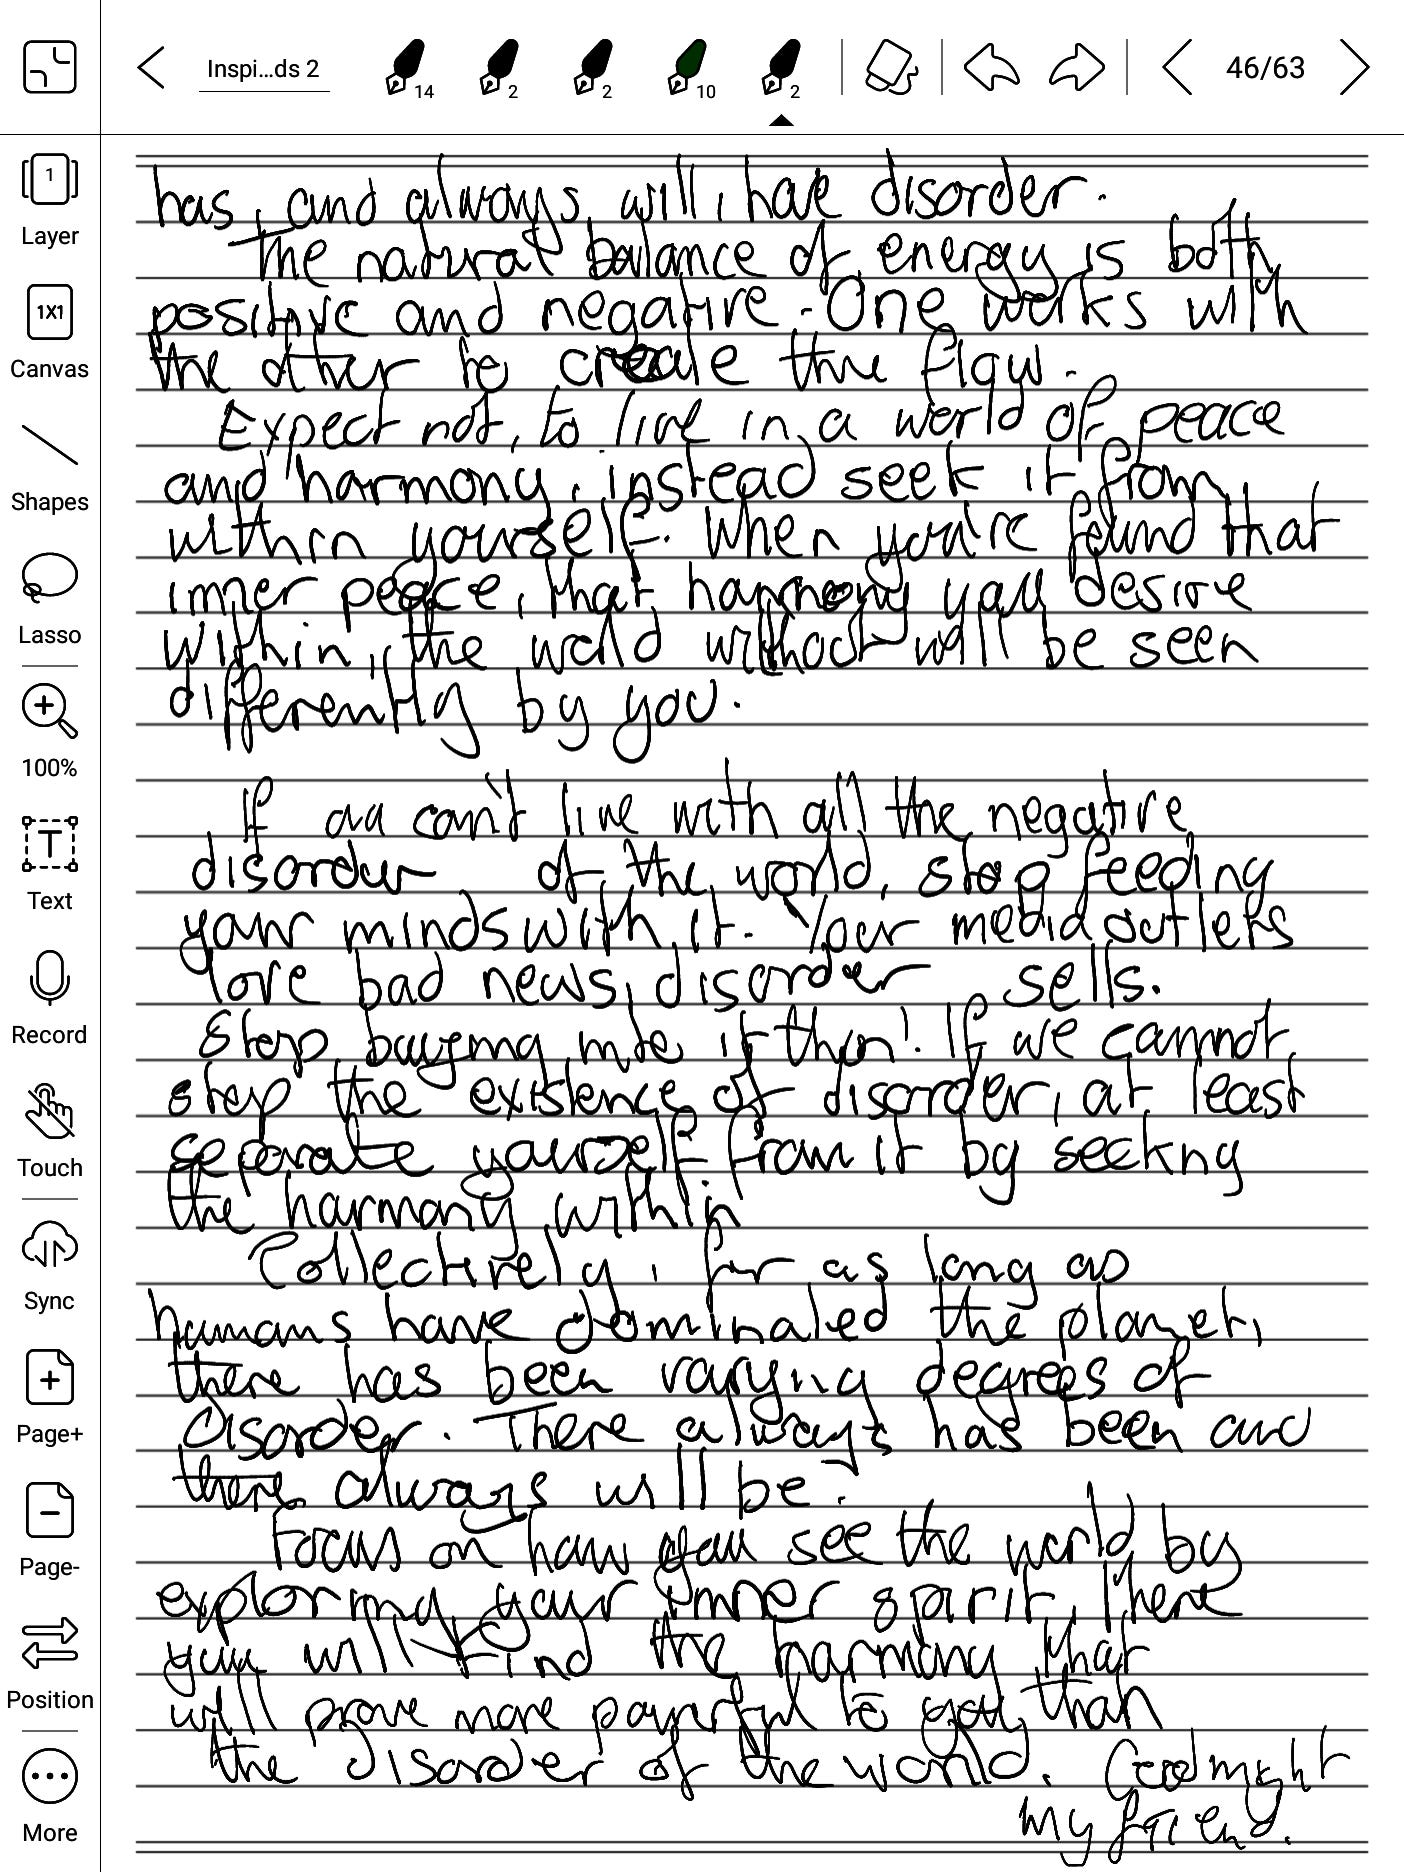 Inspi...ds 2
14
2
2
10
2
46/63
1
Layer
1X1
Canvas
Shapes
Lasso
100%
T
Text
Record
Touch
Sync
Page+
Page-
Position
More
has, and always, will, have disorder.
The natural balance of energy is both
positive and negative. One works with
the other to create the flow.
Expect not, to live in a world of peace
and harmony, instead seek it from
within yourself. When you've found that
inner peace, that harmony you desire
within, the world without will be seen
differently by you.
If can't live with all the negative
disorder of the world, stop feeding
your minds with it. Your media outlets
love bad news, disorder sells.
Stop buying into it then! If we cannot
stop the existence of disorder, at least
separate yourself from it by seeking
the harmony within
Collectively, for as long as
humans have dominated the planet,
there has been varying degrees of
disorder. There always has been and
there always will be.
Focus on how you see the world by
exploring your inner spirit, there
you will find the harmony that
will prove more powerful to you than
the disorder of the world. Goodnight
my friend.